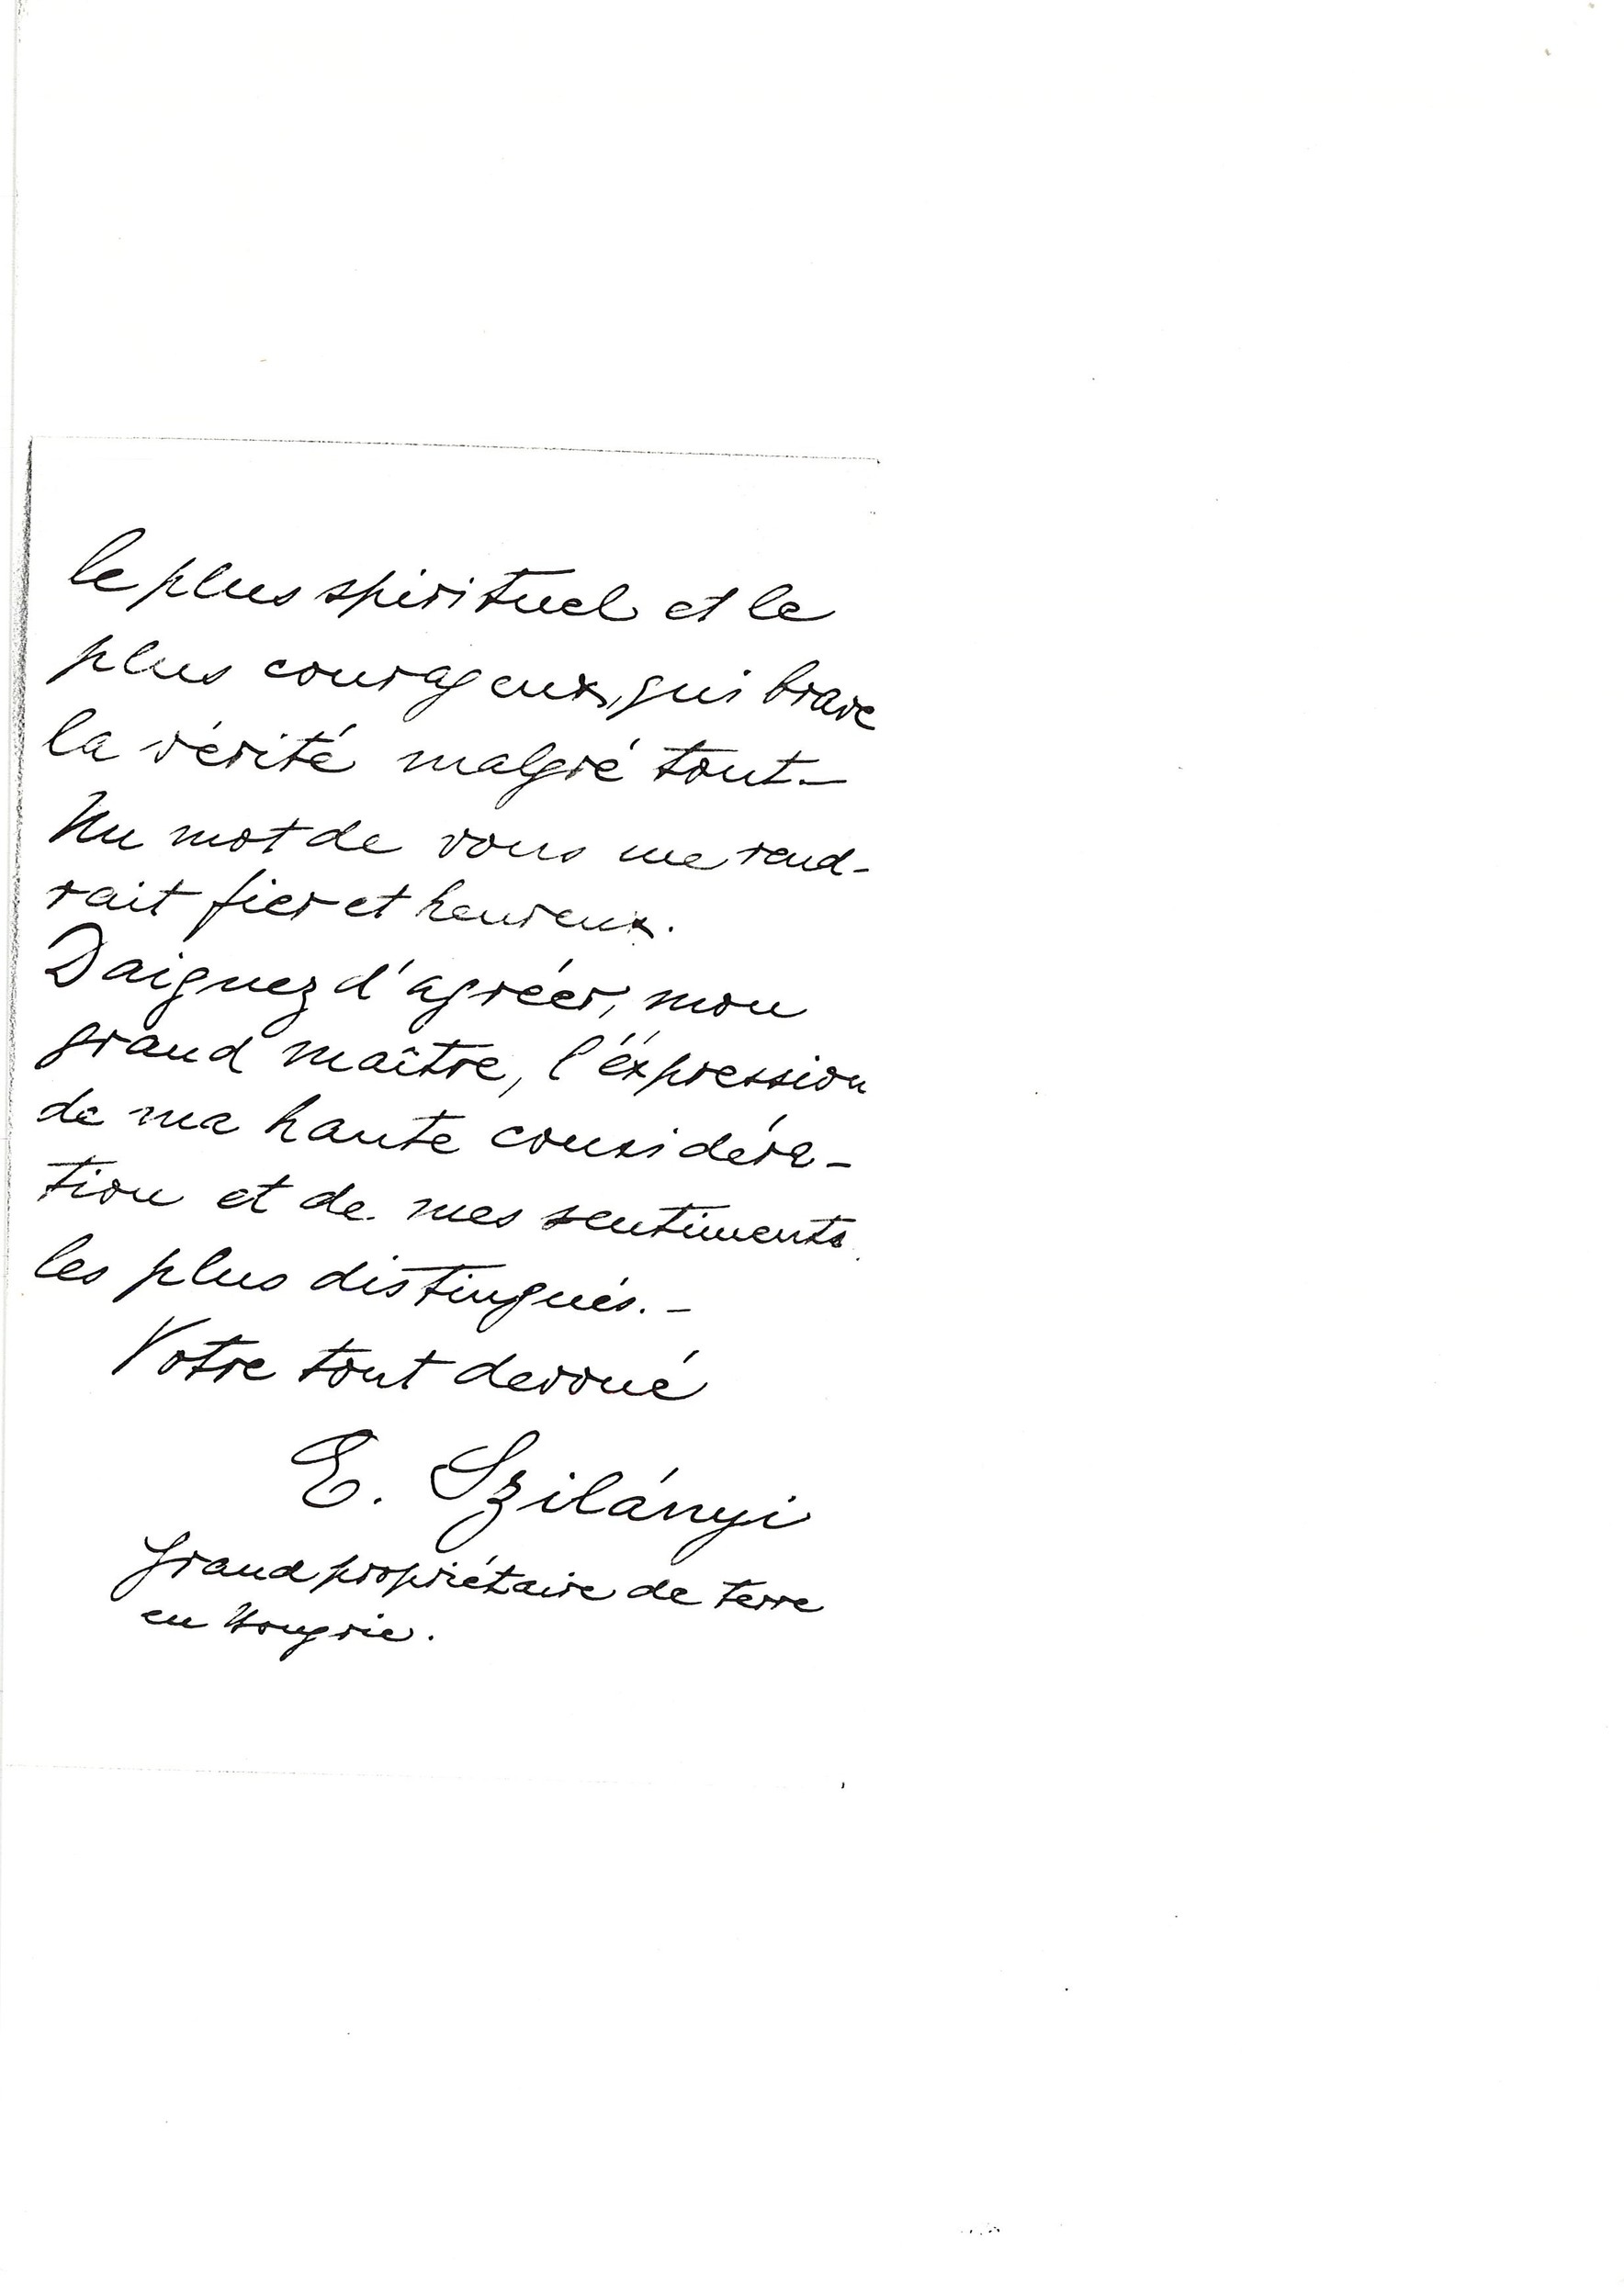 le plus spirituel et le
plus courageux, qui brave
la vérité malgré tout_
Un mot de vous me rend-
rait fier et heureux.
Daignez d'agréer, mon
grand maître, l'éxpression
de ma haute considéra-
tion et de mes sentiments
les plus distingués. -
Votre tout devoué
E. Szilányi
Grand propriétaire de terre
en Hongrie.